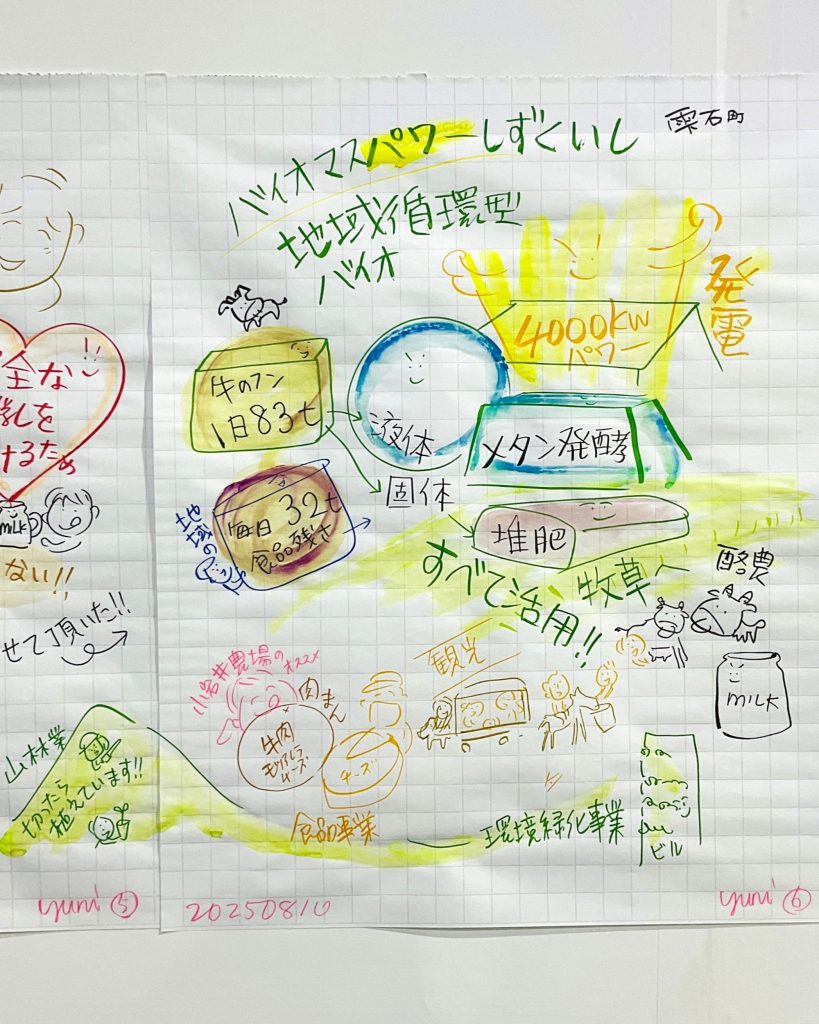 全な
乳を
けるため
MILK
ない!!
せて頂いた!!
山林業
切ったら
植えています!!
yumi ⑤
雫石町
バイオマスパワーしずくいし
地域循環型
バイオ
4000kw
パワー
の
発電
牛のフン
1日83t
液体
メタン発酵
固体
地域の
毎日32t
食品残さ
堆肥
すべて活用!!
牧草へ
酪農
MILK
小岩井農場の
オススメ
肉まん
牛肉
モッツァレラ
チーズ
チーズ
観光
食品事業
環境緑化事業
ビル
20250810
yumi ⑥